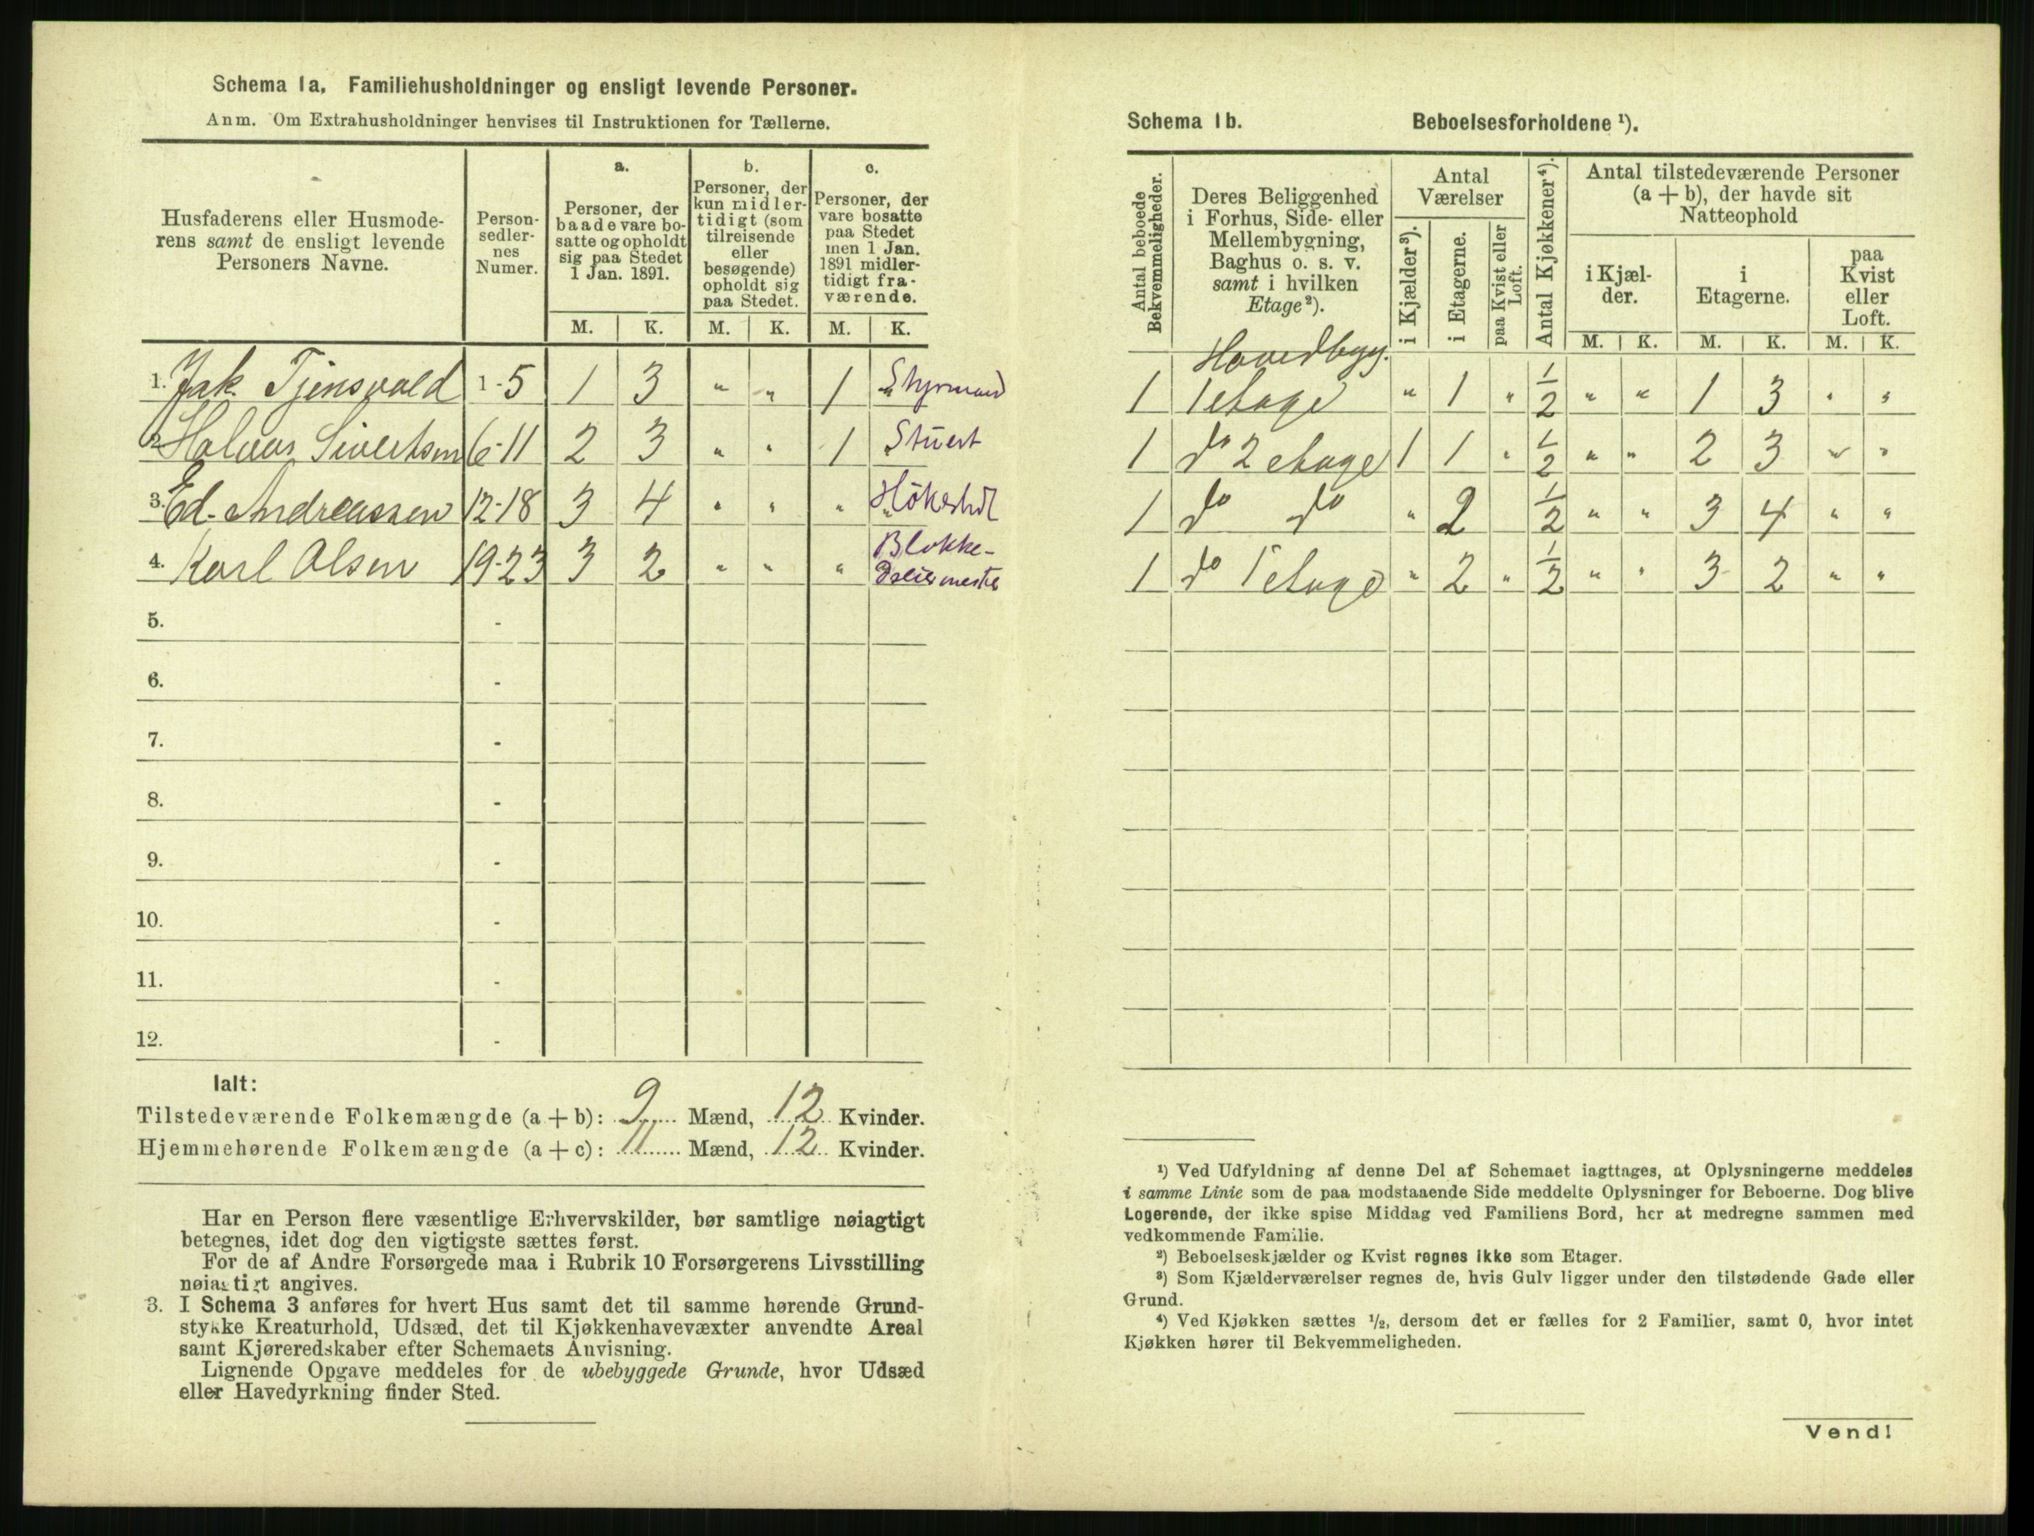 Schema 1a. Familiehusholdninger og ensligt levende Personer.
Anm. Om Extrahusholdninger henvises til Instruktionen for Tællerne.
Husfaderens eller Husmoderens samt de ensligt levende Personers Navne.
Personsedlernes Numer.
a. Personer, der baade vare bosatte og opholdt sig paa Stedet 1 Jan. 1891.
b. Personer, der kun midlertidigt (som tilreisende eller besøgende) opholdt sig paa Stedet.
c. Personer, der vare bosatte paa Stedet men 1 Jan. 1891 midlertidigt fraværende.
M. K. M. K. M. K.
1. Jak. Tjensvold 1-5 1 3 " " 1 " Styrmand
2. Halvor Sivertsen 6-11 2 3 " " 1 Stuert
3. Ed. Andreassen 12-18 3 4 " " " "
4. Karl Olsen 19-23 3 2 " " " Blokke-
5. -
6. -
7. -
8. -
9. -
10. -
11. -
12. -
Ialt:
Tilstedeværende Folkemængde (a + b): 9 Mænd, 12 Kvinder.
Hjemmehørende Folkemængde (a + c): 11 Mænd, 12 Kvinder.
Har en Person flere væsentlige Erhvervskilder, bør samtlige nøiagtigt
betegnes, idet dog den vigtigste sættes først.
For de af Andre Forsørgede maa i Rubrik 10 Forsørgerens Livsstilling
nøiagtigt angives.
3. I Schema 3 anføres for hvert Hus samt det til samme hørende Grund-
stykke Kreaturhold, Udsæd, det til Kjøkkenhavevæxter anvendte Areal
samt Kjøreredskaber efter Schemaets Anvisning.
Lignende Opgave meddeles for de ubebyggede Grunde, hvor Udsæd
eller Havedyrkning finder Sted.
Schema 1b. Beboelsesforholdene ¹).
Antal beboede Bekvemmeligheder.
Deres Beliggenhed i Forhus, Side- eller Mellembygning, Baghus o. s. v. samt i hvilken Etage²).
Antal Værelser
i Kjælder³).
i Etagerne.
paa Kvist eller Loft.
Antal Kjøkkener⁴).
Antal tilstedeværende Personer (a + b), der havde sit Natteophold
i Kjælder.
i Etagerne.
paa Kvist eller Loft.
M. K. M. K. M. K.
Hovedbyg.
1 1 etage " 1 " ½ " " 1 3 " "
1 do 2 etage 1 1 " ½ " " 2 3 " "
1 do do " 2 ½ " " 3 4 " "
1 do 1 etage " 2 " ½ " " 3 2 " "
¹) Ved Udfyldning af denne Del af Schemaet iagttages, at Oplysningerne meddeles
i samme Linie som de paa modstaaende Side meddelte Oplysninger for Beboerne. Dog blive
Logerende, der ikke spise Middag ved Familiens Bord, her at medregne sammen med
vedkommende Familie.
²) Beboelseskjælder og Kvist regnes ikke som Etager.
³) Som Kjælderværelser regnes de, hvis Gulv ligger under den tilstødende Gade eller
Grund.
⁴) Ved Kjøkken sættes ½, dersom det er fælles for 2 Familier, samt 0, hvor intet
Kjøkken hører til Bekvemmeligheden.
Vend!